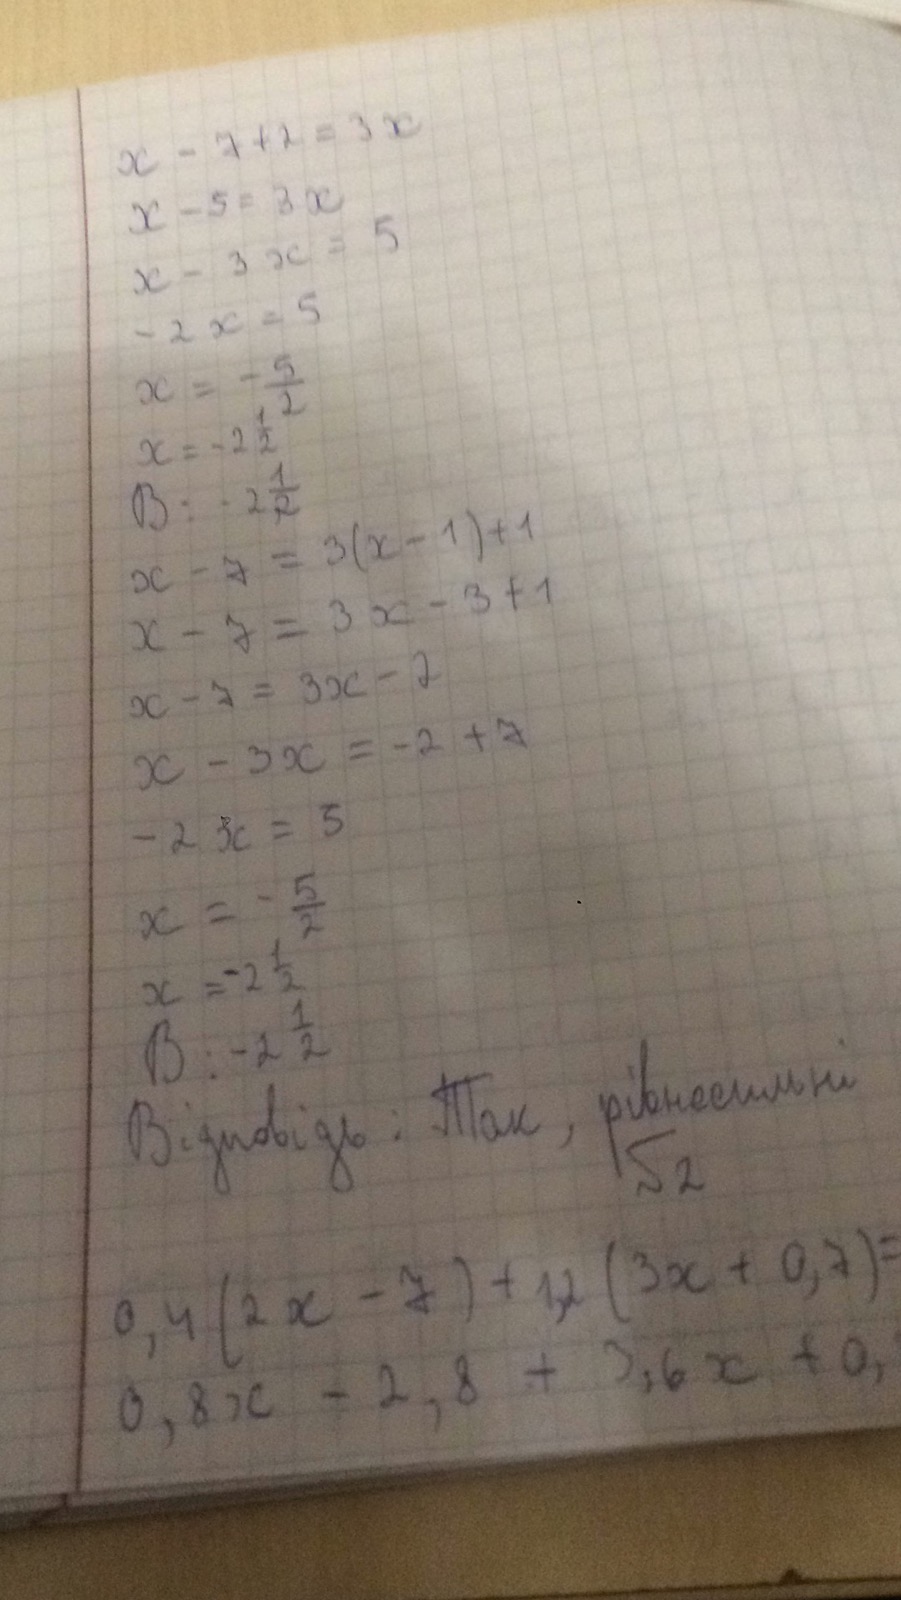 x - 7 + 2 = 3x
x - 5 = 3x
x - 3x = 5
-2x = 5
x = -5/2
x = -2 1/2
В: -2 1/2
x - 7 = 3(x - 1) + 1
x - 7 = 3x - 3 + 1
x - 7 = 3x - 2
x - 3x = -2 + 7
-2x = 5
x = -5/2
x = -2 1/2
В: -2 1/2
Відповідь: Так, рівносильні
√2
0,4(2x - 7) + 1,2(3x + 0,7) =
0,8x - 2,8 + 3,6x + 0,